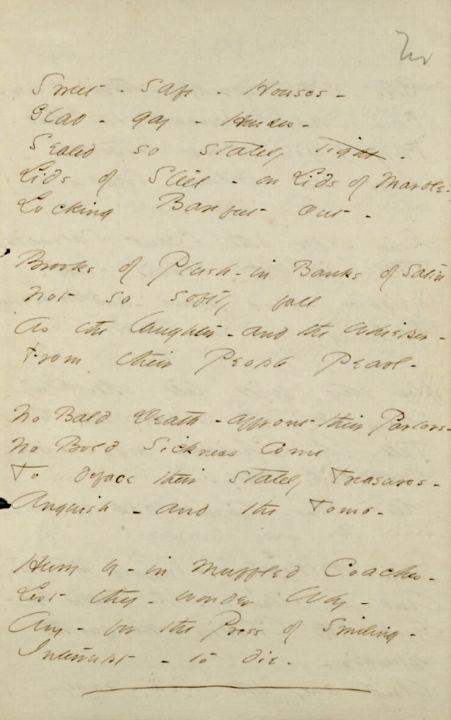 Sweet - Safe - Houses -
Glad - gay - Houses -
Sealed so stately tight -
Lids of Steel - on Lids of Marble -
Locking Barefeet out -
Brooks of Plush - in Banks of Satin
Not so softly fall
As the laughter - and the whisper -
From their People Pearl -
No Bald Death - affront their Parlors -
No Bold Sickness come
To deface their stately Treasures -
Anguish - and the Tomb -
Hum by - in muffled Coaches -
Lest they - wonder Why -
Any - for the Press of Smiling -
Interrupt - to die -